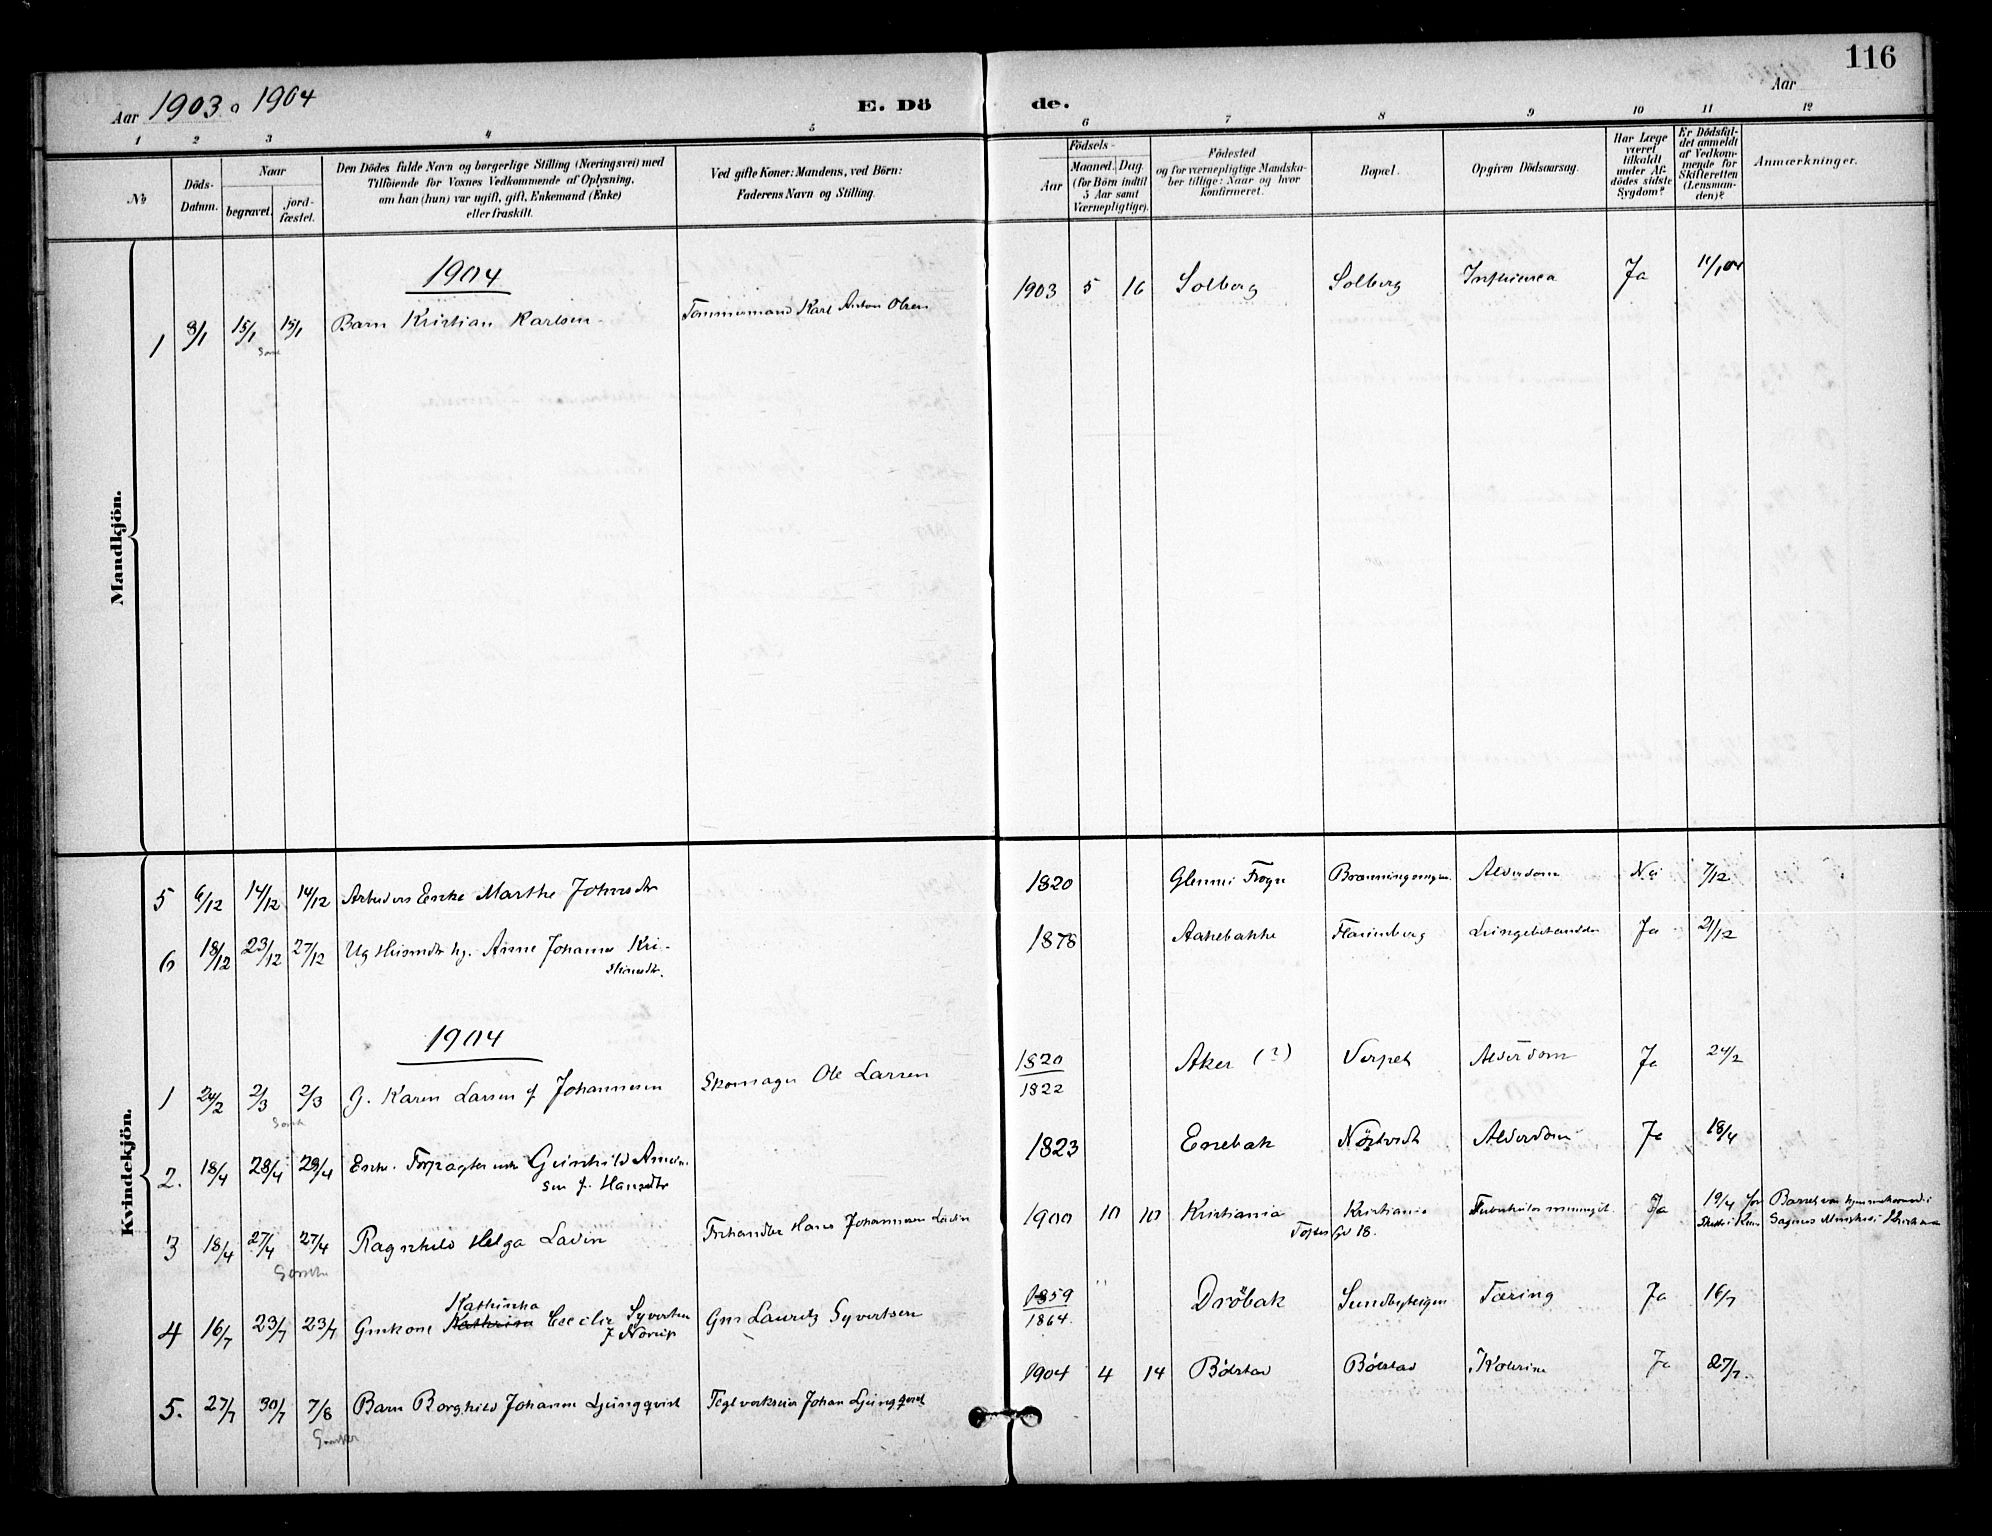 116
Aar 1903 o 1904
E. Dö de.
Aar
1 2 3 4 5 6 7 8 9 10 11 12
№
Döds-Datum.
Naar
begravet.
jord-fæstet.
Den Dödes fulde Navn og borgerlige Stilling (Næringsvei) med
Tilföiende for Voxnes Vedkommende af Oplysning,
om han (hun) var ugift, gift, Enkemand (Enke)
eller fraskilt.
Ved gifte Koner: Mandens, ved Börn:
Faderens Navn og Stilling.
Födsels-
Aar
Maaned. Dag.
(for Börn indtil
5 Aar samt
Værnepligtige).
Födested
og for værnepligtige Mandska-
ber tillige: Naar og hvor
Konfirmeret.
Bopæl.
Opgiven Dödsaarsag.
Har Læge
været
tilkaldt
under Af-
dödes sidste
Sygdom?
Er Dödsfal-
det anmeldt
af Vedkom-
mende for
Skifteretten
(Lensman-
den)?
Anmærkninger.
Mandkjön.
1904
1 8/1 15/1 15/1 Barn Kristian Karlsen Tømmermand Karl Anton Olsen 1903 5 16 Solberg Solberg Influensa Ja 11/1 04
Kvindekjön.
5 6/12 14/12 14/12 Arbeiders Enke Marthe Johnsdtr 1820 Glenne Frogn Alderdom Nei 7/12
6 18/12 23/12 27/12 Ug Anne Johanne Kri-
stiansdtr. 1878 Aakebakke Lungebetændelse Ja 21/12
1904
1 24/2 2/3 2/3 G. Karen Larsen f Johannesen Skomager Ole Larsen 1820 Aker (?) Verpet Alderdom Ja 24/2
1822
2. 18/4 28/4 28/4 Enke. Gunhild
sen f. Hansdtr 1823 Enebak Alderdom Ja 18/4
3 18/4 27/4 27/4 Ragnhild Helga Ladin Johannesen Ladin 1900 10 10 Kristiania Kristiania Ja 19/4
18.
4 16/7 23/7 23/7 Gmkone Kathrine Kathinka Cecilie Syvertsen
f Norup Gm Lauritz Syvertsen 1859 Dröbak Tæring Ja 16/7
1864.
5. 27/7 30/7 7/8 Barn Borghild Johanne Ljungqvist Johan Ljungqvist 1904 4 14 Bölstad Bölstad Kolerine Ja 27/7